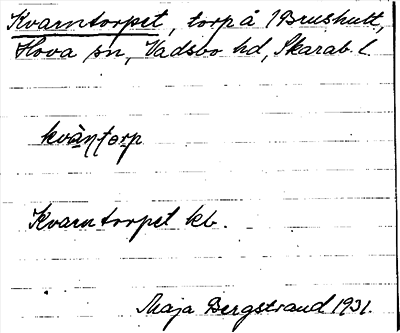 Kvarntorpet, torp å 1 Brushult,
Hova sn, Vadsbo hd, Skarab. l.
kvàn̥torp
Kvarntorpet kb.
Maja Bergstrand 1931.